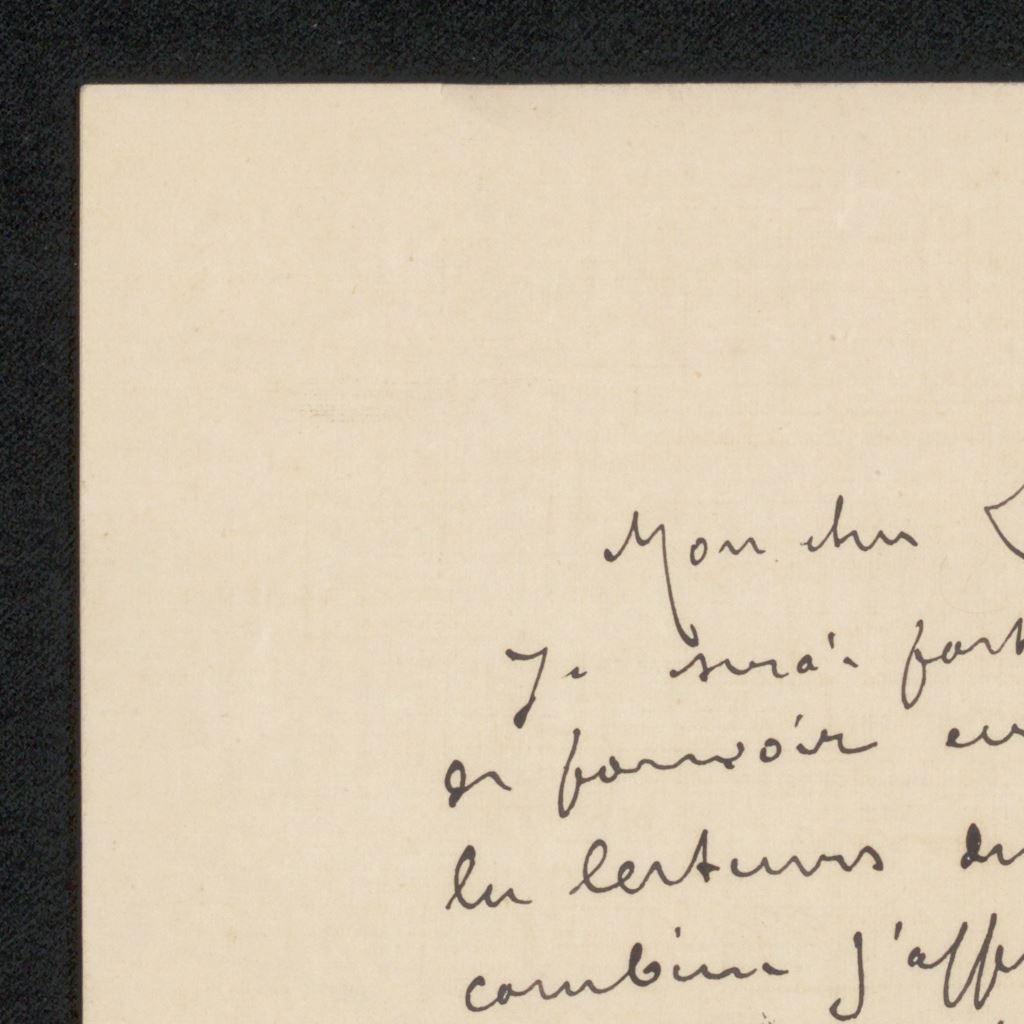 Mon cher
Je serai fort
de pouvoir
les lecteurs de
combien j'app